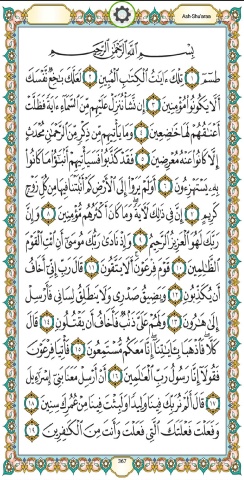 Ash-Shu'araa
بِسْمِ اللَّهِ الرَّحْمَٰنِ الرَّحِيمِ
طسٓمٓ ١ تِلْكَ ءَايَٰتُ ٱلْكِتَٰبِ ٱلْمُبِينِ ٢ لَعَلَّكَ بَٰخِعٌ نَّفْسَكَ
أَلَّا يَكُونُوا۟ مُؤْمِنِينَ ٣ إِن نَّشَأْ نُنَزِّلْ عَلَيْهِم مِّنَ ٱلسَّمَآءِ ءَايَةً فَظَلَّتْ
أَعْنَٰقُهُمْ لَهَا خَٰضِعِينَ ٤ وَمَا يَأْتِيهِم مِّن ذِكْرٍ مِّنَ ٱلرَّحْمَٰنِ مُحْدَثٍ
إِلَّا كَانُوا۟ عَنْهُ مُعْرِضِينَ ٥ فَقَدْ كَذَّبُوا۟ فَسَيَأْتِيهِمْ أَنۢبَٰٓؤُا۟ مَا كَانُوا۟
بِهِۦ يَسْتَهْزِءُونَ ٦ أَوَلَمْ يَرَوْا۟ إِلَى ٱلْأَرْضِ كَمْ أَنۢبَتْنَا فِيهَا مِن كُلِّ زَوْجٍ
كَرِيمٍ ٧ إِنَّ فِى ذَٰلِكَ لَءَايَةً وَمَا كَانَ أَكْثَرُهُم مُّؤْمِنِينَ ٨ وَإِنَّ
رَبَّكَ لَهُوَ ٱلْعَزِيزُ ٱلرَّحِيمُ ٩ وَإِذْ نَادَىٰ رَبُّكَ مُوسَىٰٓ أَنِ ٱئْتِ ٱلْقَوْمَ
ٱلظَّٰلِمِينَ ١٠ قَوْمَ فِرْعَوْنَ أَلَا يَتَّقُونَ ١١ قَالَ رَبِّ إِنِّىٓ أَخَافُ
أَن يُكَذِّبُونِ ١٢ وَيَضِيقُ صَدْرِى وَلَا يَنطَلِقُ لِسَانِى فَأَرْسِلْ
إِلَىٰ هَٰرُونَ ١٣ وَلَهُمْ عَلَىَّ ذَنۢبٌ فَأَخَافُ أَن يَقْتُلُونِ ١٤ قَالَ
كَلَّا فَٱذْهَبَا بِـَٔايَٰتِنَآ إِنَّا مَعَكُم مُّسْتَمِعُونَ ١٥ فَأْتِيَا فِرْعَوْنَ
فَقُولَآ إِنَّا رَسُولُ رَبِّ ٱلْعَٰلَمِينَ ١٦ أَنْ أَرْسِلْ مَعَنَا بَنِىٓ إِسْرَٰٓءِيلَ
١٧ قَالَ أَلَمْ نُرَبِّكَ فِينَا وَلِيدًا وَلَبِثْتَ فِينَا مِنْ عُمُرِكَ سِنِينَ ١٨
وَفَعَلْتَ فَعْلَتَكَ ٱلَّتِى فَعَلْتَ وَأَنتَ مِنَ ٱلْكَٰفِرِينَ ١٩
367